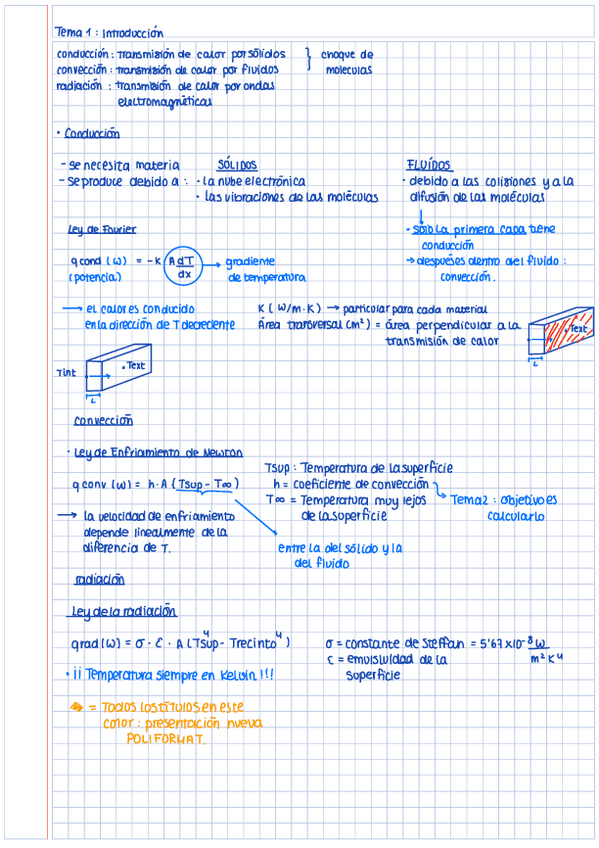 Tema 1: Introducción
conducción: transmisión de calor por sólidos } choque de
convección: transmisión de calor por fluidos moleculas
radiación: transmisión de calor por ondas
electromagnéticas
· Conducción
- se necesita materia SÓLIDOS FLUÍDOS
- se produce debido a: · la nube electrónica · debido a las colisiones y a la
· las vibraciones de las moléculas difusión de las moléculas
Ley de Fourier · solo la primera capa tiene
conducción
q cond (W) = -K A dT/dx → gradiente → despueses dentro del fluido:
(potencia) de temperatura convección.
→ el calor es conducido K (W/m·K) → particular para cada material
en la dirección de T decreciente Área transversal (m²) = área perpendicular a la
transmisión de calor
Text
L
Tint · Text
L
convección
· Ley de Enfriamiento de Newton
Tsup: Temperatura de la superficie
q conv (W) = h·A (Tsup - T∞) h = coeficiente de convección
T∞ = Temperatura muy lejos → Tema 2: objetivo es
→ la velocidad de enfriamiento de la superficie calcularlo
depende linealmente de la
diferencia de T.
entre la del sólido y la
del fluido
radiación
Ley de la radiación
qrad (W) = σ · Ɛ · A (Tsup⁴ - Trecinto⁴) σ = constante de Steffan = 5'67 x10⁻⁸ W/m²K⁴
Ɛ = emvisividad de la
· ¡¡ Temperatura siempre en Kelvin !!! superficie
= Todos los títulos en este
color: presentación nueva
POLIFORMAT.